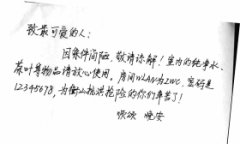 致最可爱的人：
因条件简陋，敬请谅解！室内的纯净水、
茶叶等物品请放心使用。房间WLAN为ZWC，密码是
12345678，为衡山抗洪抢险的你们辛苦了！
晚安